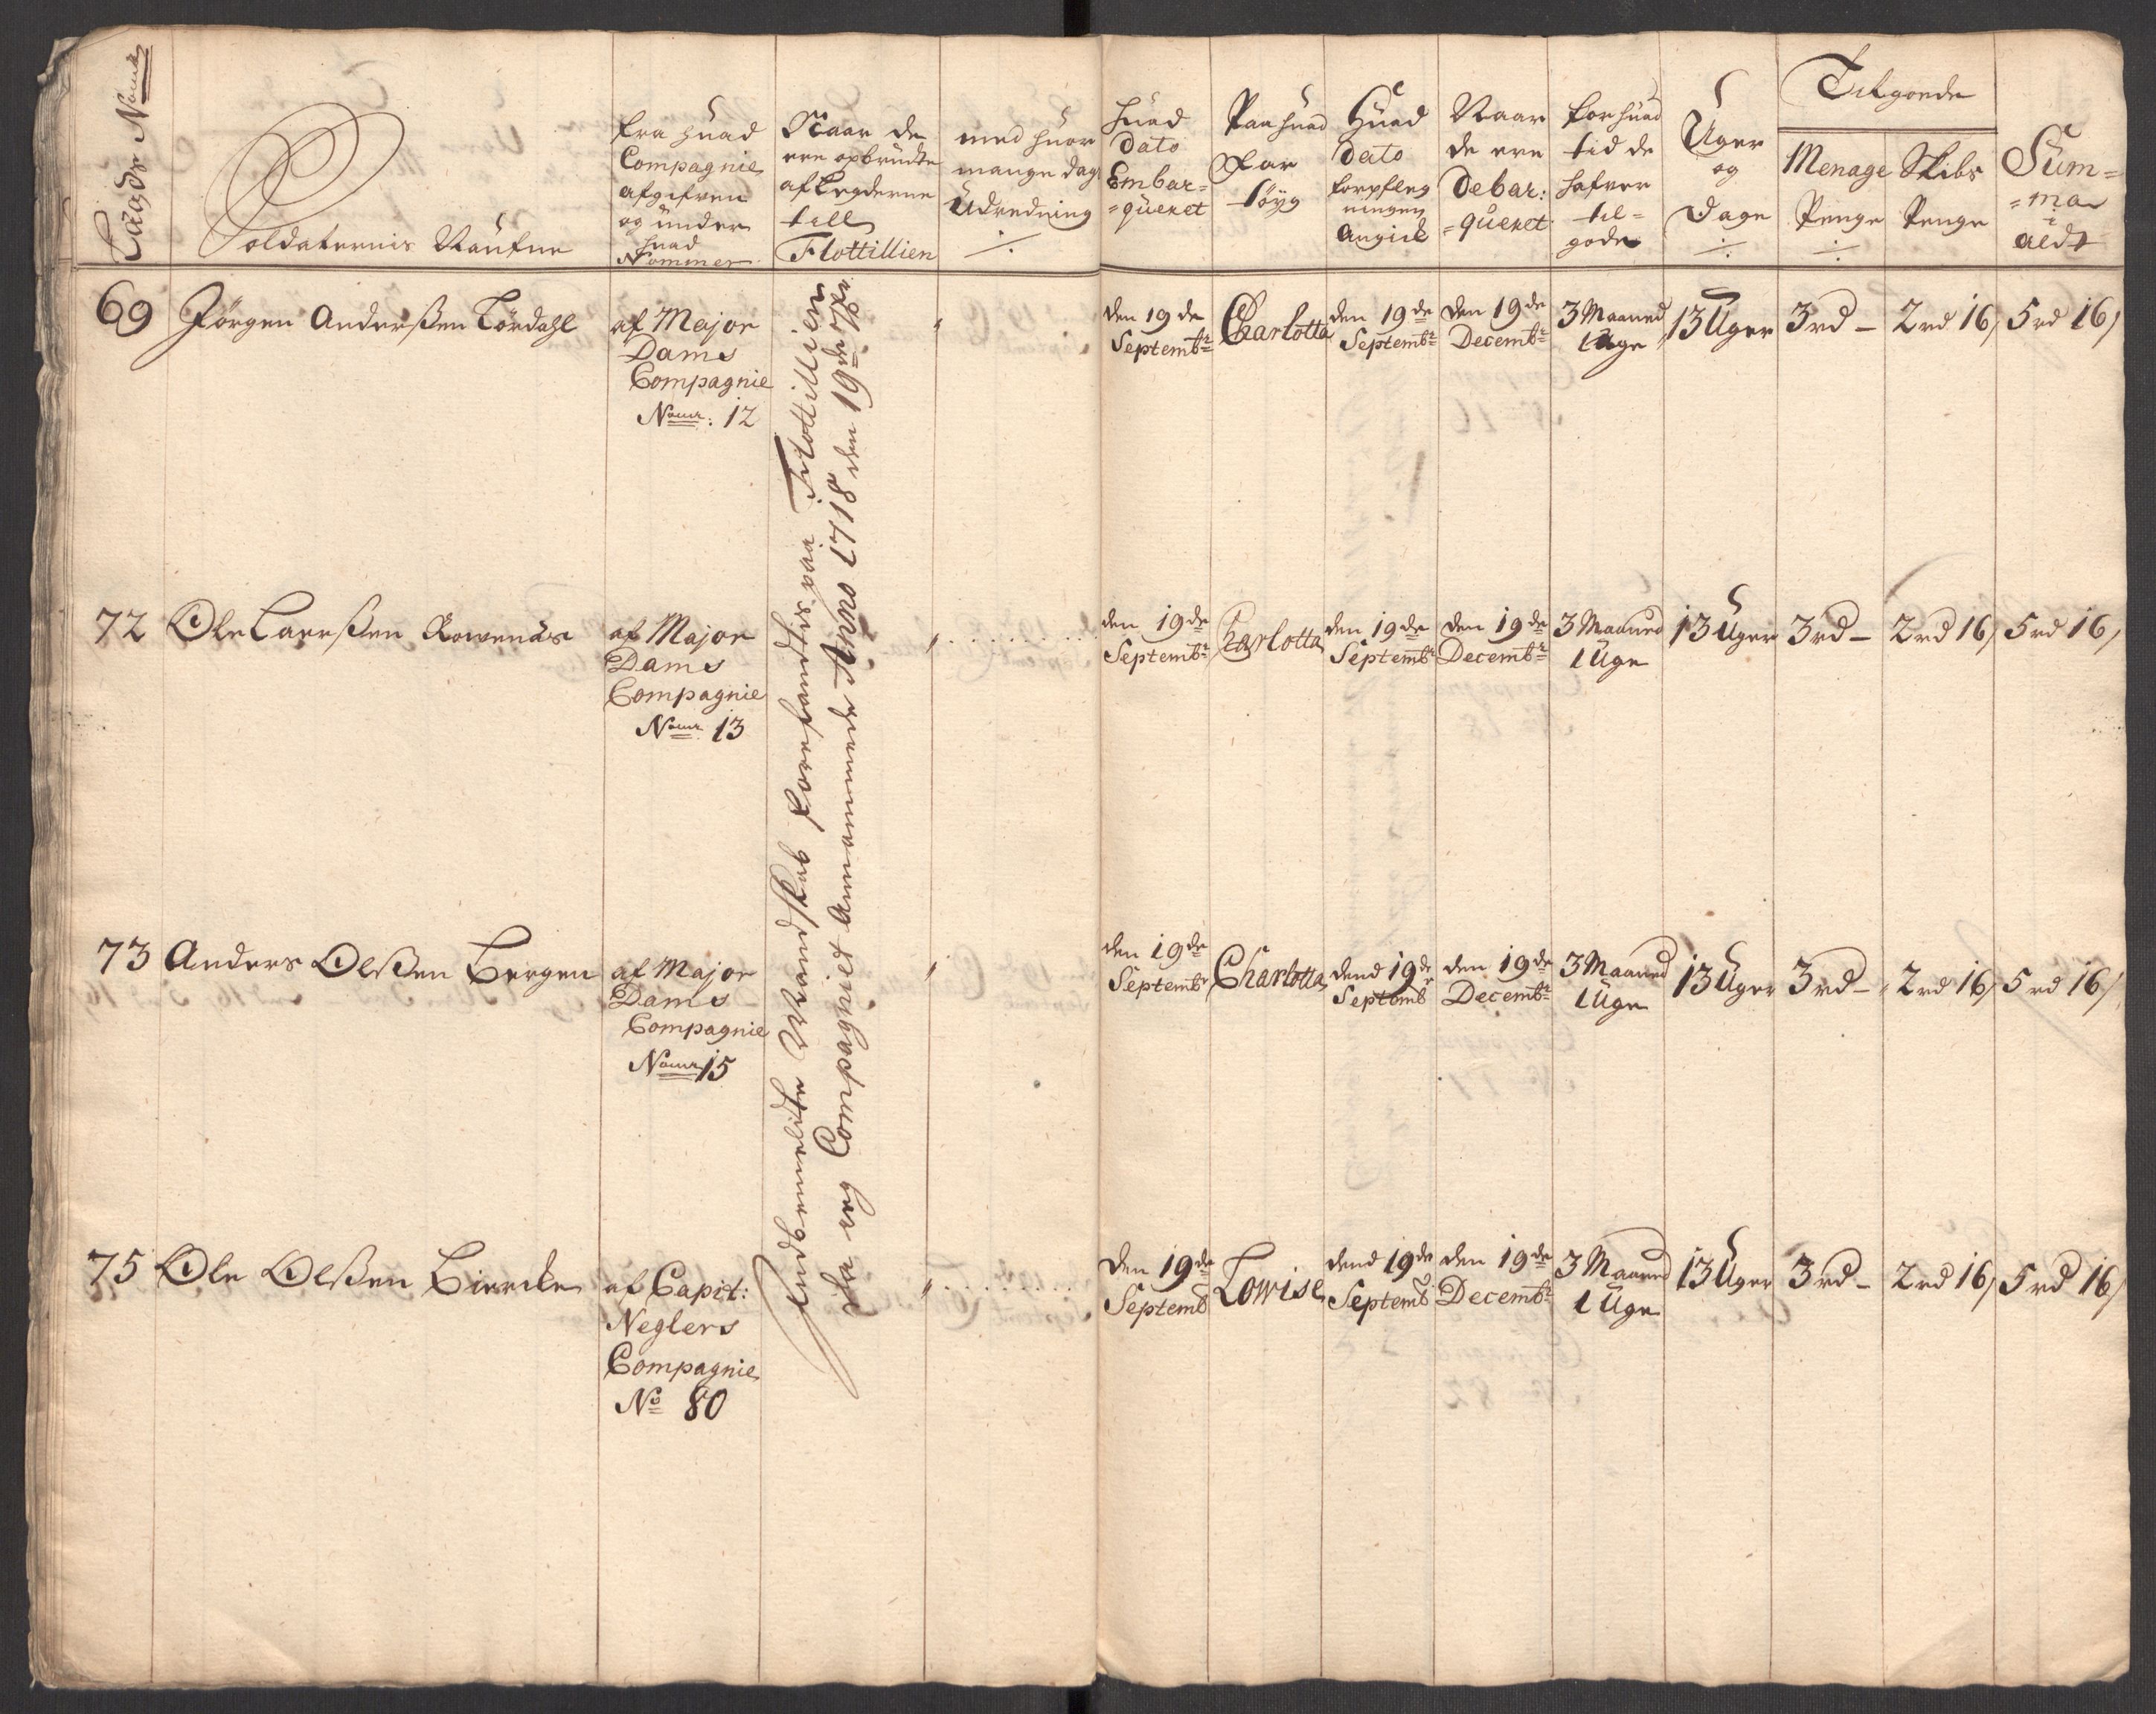 Laugds Nomr
Soldaternis Naufne
fra huad
Compagnie
afgifven
og under
huad
Nommer
Naar de
ere opbrudte
af Legderne
till
Flottillien
med huor
mange dag
Udredning
Huad
Dato
Embar=
=queret
Paa huad
Far
töyg
Huad
Dato
forpfleg
ningen
Angick
Naar
de ere
Debar:
=queret
for huad
tid de
hafver
til=
gode
Uger
og
Dage
Tilgoede
Menage
Penge
Skibs
Penge
Sum=
=ma
aldt
69 Jörgen Anderssen Lördahl
af Major
Dams
Compagnie
Nomr: 12
den 19de
Septembr
Charlotta
den 19de
Septembr
den 19de
Decembr
3 Maaned
1 Uge
13 Uger
3rd –
2rd 16/
5rd 16/
72 Ole Larssen
af Major
Dams
Compagnie
Nomr 13
den 19de
Septembr
Charlotta
den 19de
Septembr
den 19de
Decembr
3 Maaned
1 Uge
13 Uger
3rd –
2rd 16/
5rd 16/
73 Anders Olssen Bergen
af Major
Dams
Compagnie
Nomr 15
den 19de
Septembr
Charlotta
dend 19de
Septemb
den 19de
Decembr
3 Maaned
1 Uge
13 Uger
3rd –
2rd 16/
5rd 16/
75 Ole Olssen
af Capit:
Neglers
Compagnie
No 80
den 19de
Septemb
Lowise
dend 19de
Septemb
den 19de
Decembr
3 Maaned
1 Uge
13 Uger
3rd –
2rd 16/
5rd 16/
Mandskab forefandtis paa Flottillien
da Jeg Compagniet Annammede Anno 1718 den 19de 7br